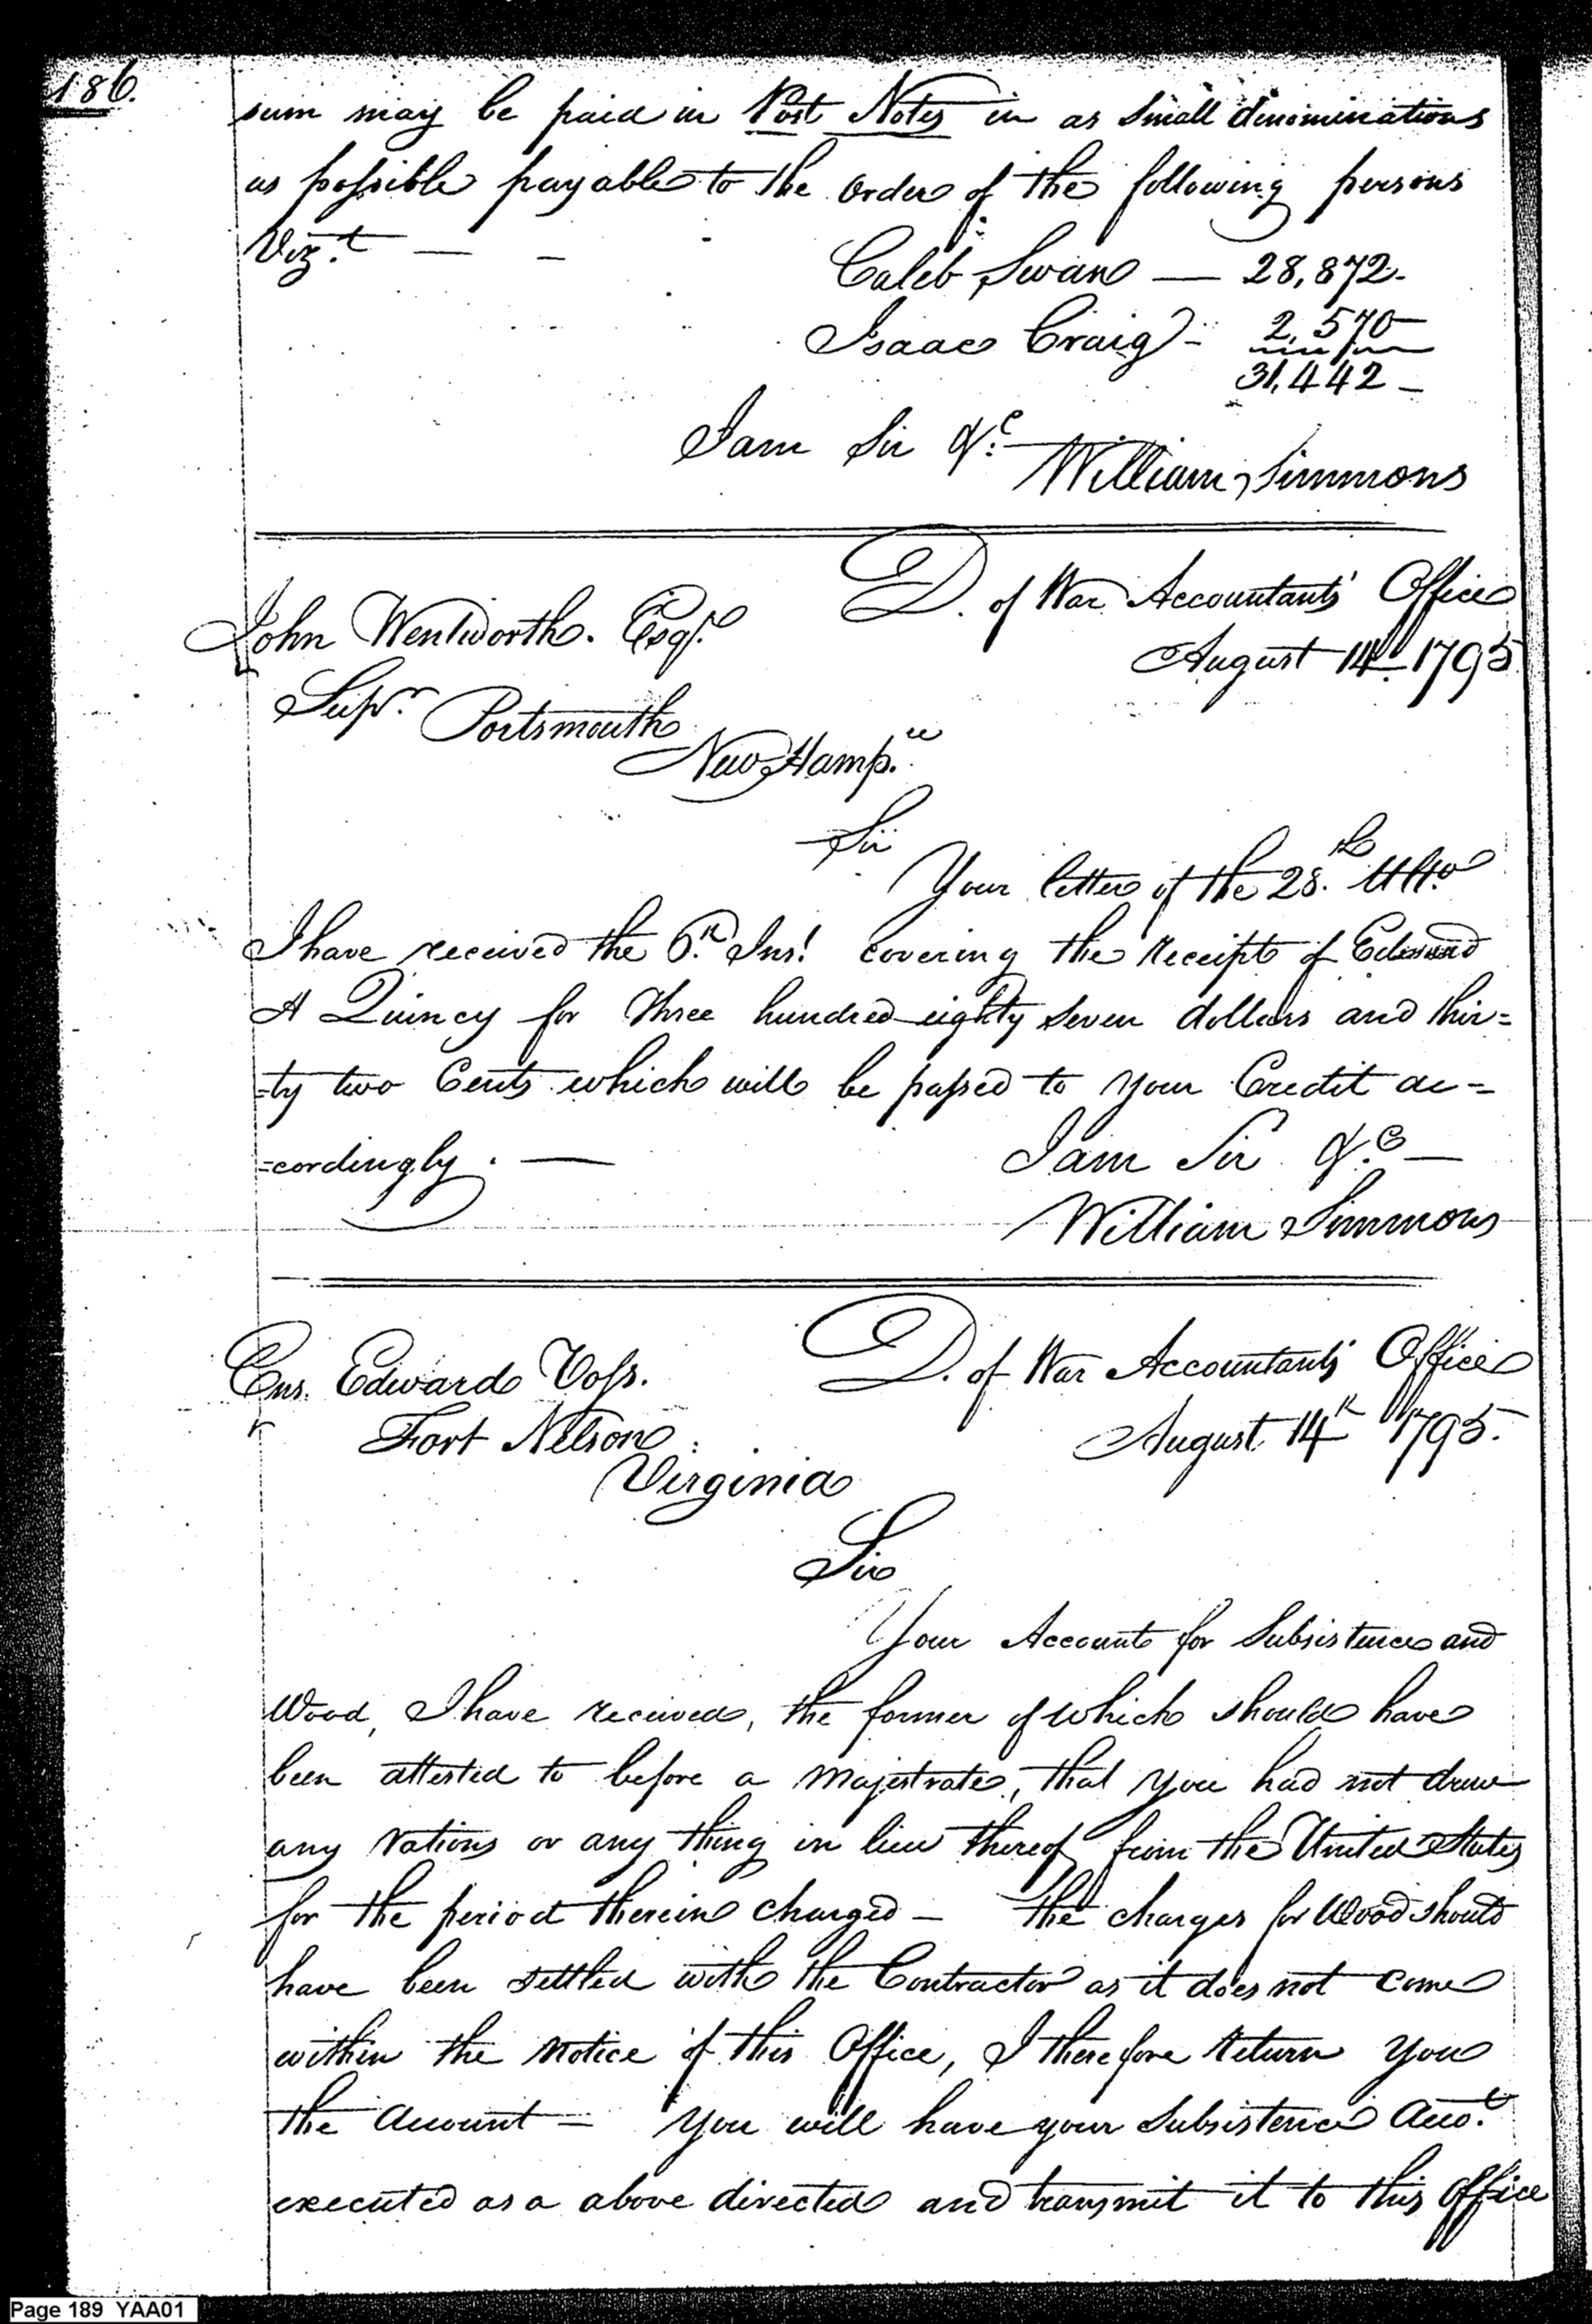 186.
sum may be paid in Post Notes in as small denominations
as possible payable to the order of the following persons
Vizt — —
Caleb Swan — 28,872.
Isaac Craig - 2,570
31,442 -
I am Sir &c.
William Simmons
D. of War Accountants' Office
August 14th 1795
John Wentworth. Esqr.
Supr. Portsmouth
New Hamp.re
Sir
Your letter of the 28.th Ulto.
I have received the 6.th Inst. covering the receipt of Edmund
A Quincy for three hundred eighty seven dollars and thir=
=ty two Cents which will be passed to your Credit ac=
=cordingly. —
I am Sir &.c —
William Simmons
D. of War Accountants' Office
August 14th 1795.
Ens. Edward Voss.
Fort Nelson
Virginia
Sir
Your Accounts for Subsistence and
Wood, I have received, the former of which should have
been attested to before a Majestrate, that you had not draw
any rations or any thing in lieu thereof from the United States
for the period therein charged — the charges for Wood should
have been settled with the Contractor as it does not come
within the notice of this Office, I therefore return you
the Account — you will have your Subsistence Acco.t
executed as a above directed and transmit it to this Office
Page 189 YAA01